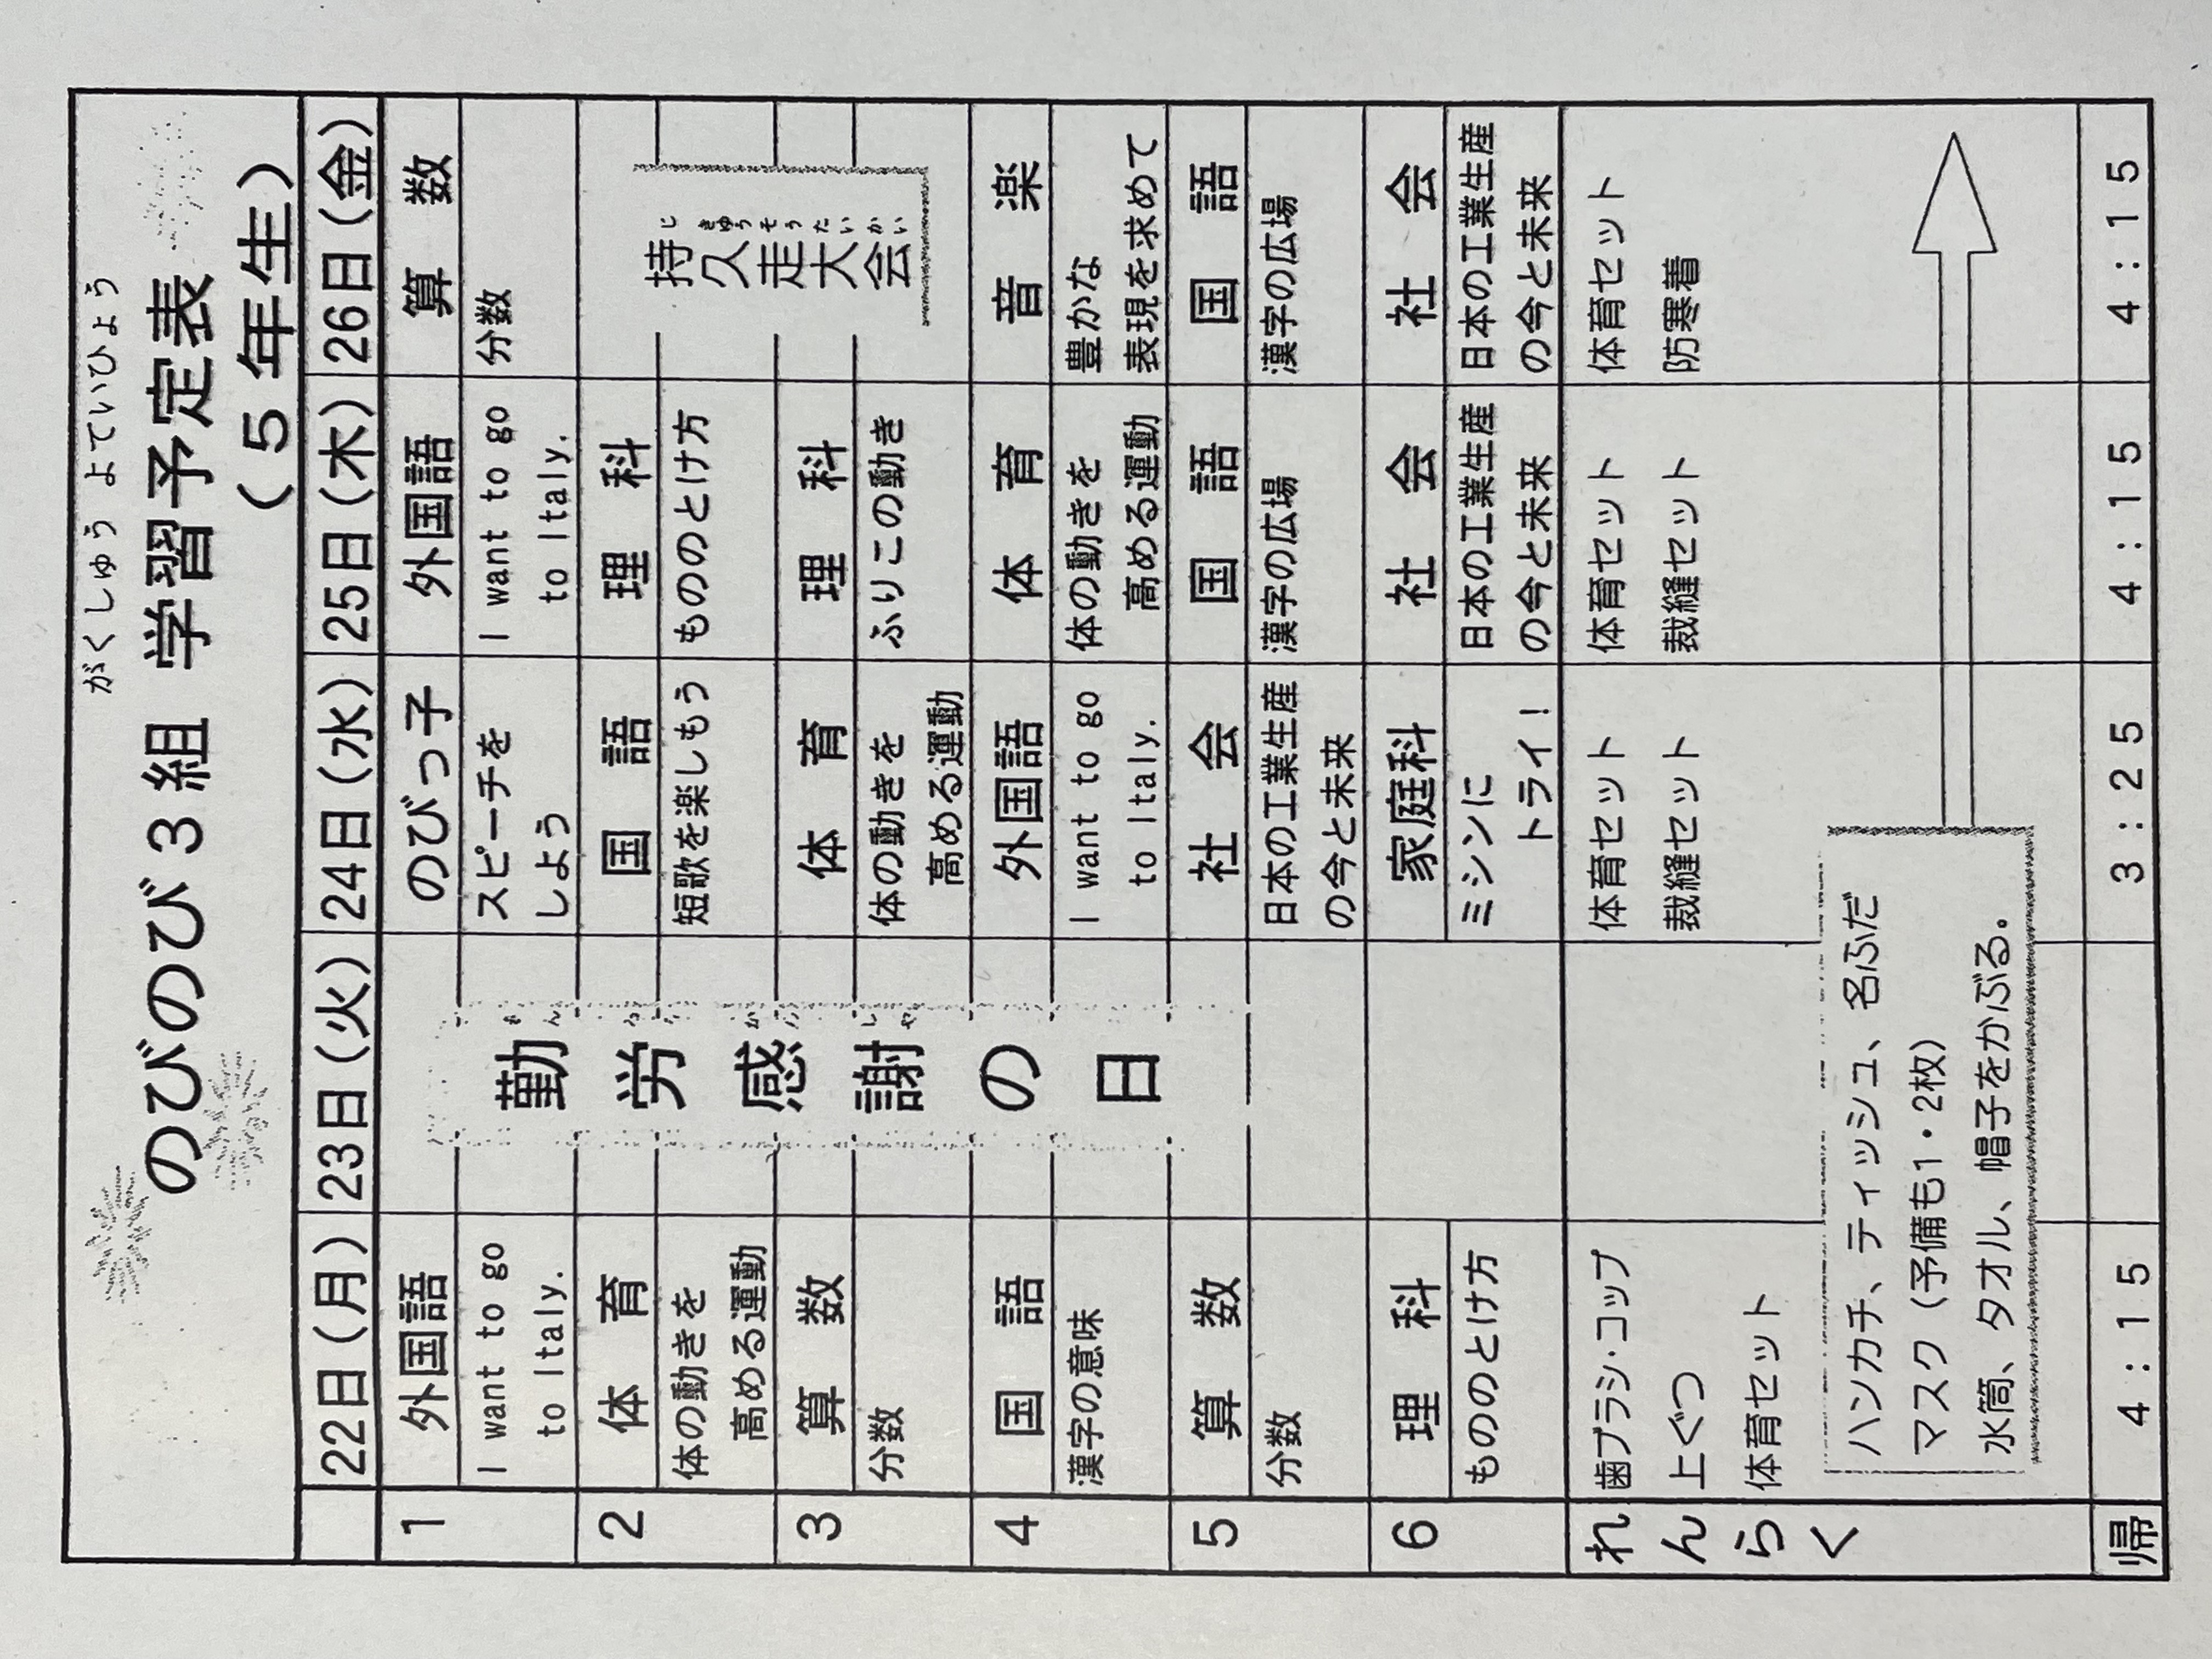 がくしゅう よていひょう
のびのび３組 学習予定表
（５年生）
22日（月） 23日（火） 24日（水） 25日（木） 26日（金）
1 外国語 のびっ子 外国語 算数
I want to go スピーチを I want to go 分数
to Italy. しよう to Italy.
2 体育 国語 理科
体の動きを 短歌を楽しもう もののとけ方
高める運動
3 算数 体育 理科
分数 体の動きを ふりこの動き
高める運動
4 国語 外国語 体育 音楽
漢字の意味 I want to go 体の動きを 豊かな
to Italy. 高める運動 表現を求めて
5 算数 社会 国語 国語
分数 日本の工業生産 漢字の広場 漢字の広場
の今と未来
6 理科 家庭科 社会 社会
もののとけ方 ミシンに 日本の工業生産 日本の工業生産
トライ！ の今と未来 の今と未来
勤労感謝の日
じきゅうそうたいかい
持久走大会
れんらく
歯ブラシ・コップ 体育セット 体育セット 体育セット
上ぐつ 裁縫セット 裁縫セット 防寒着
体育セット
ハンカチ、ティッシュ、名ふだ
マスク（予備も1・2枚）
水筒、タオル、帽子をかぶる。
帰 4:15 3:25 4:15 4:15